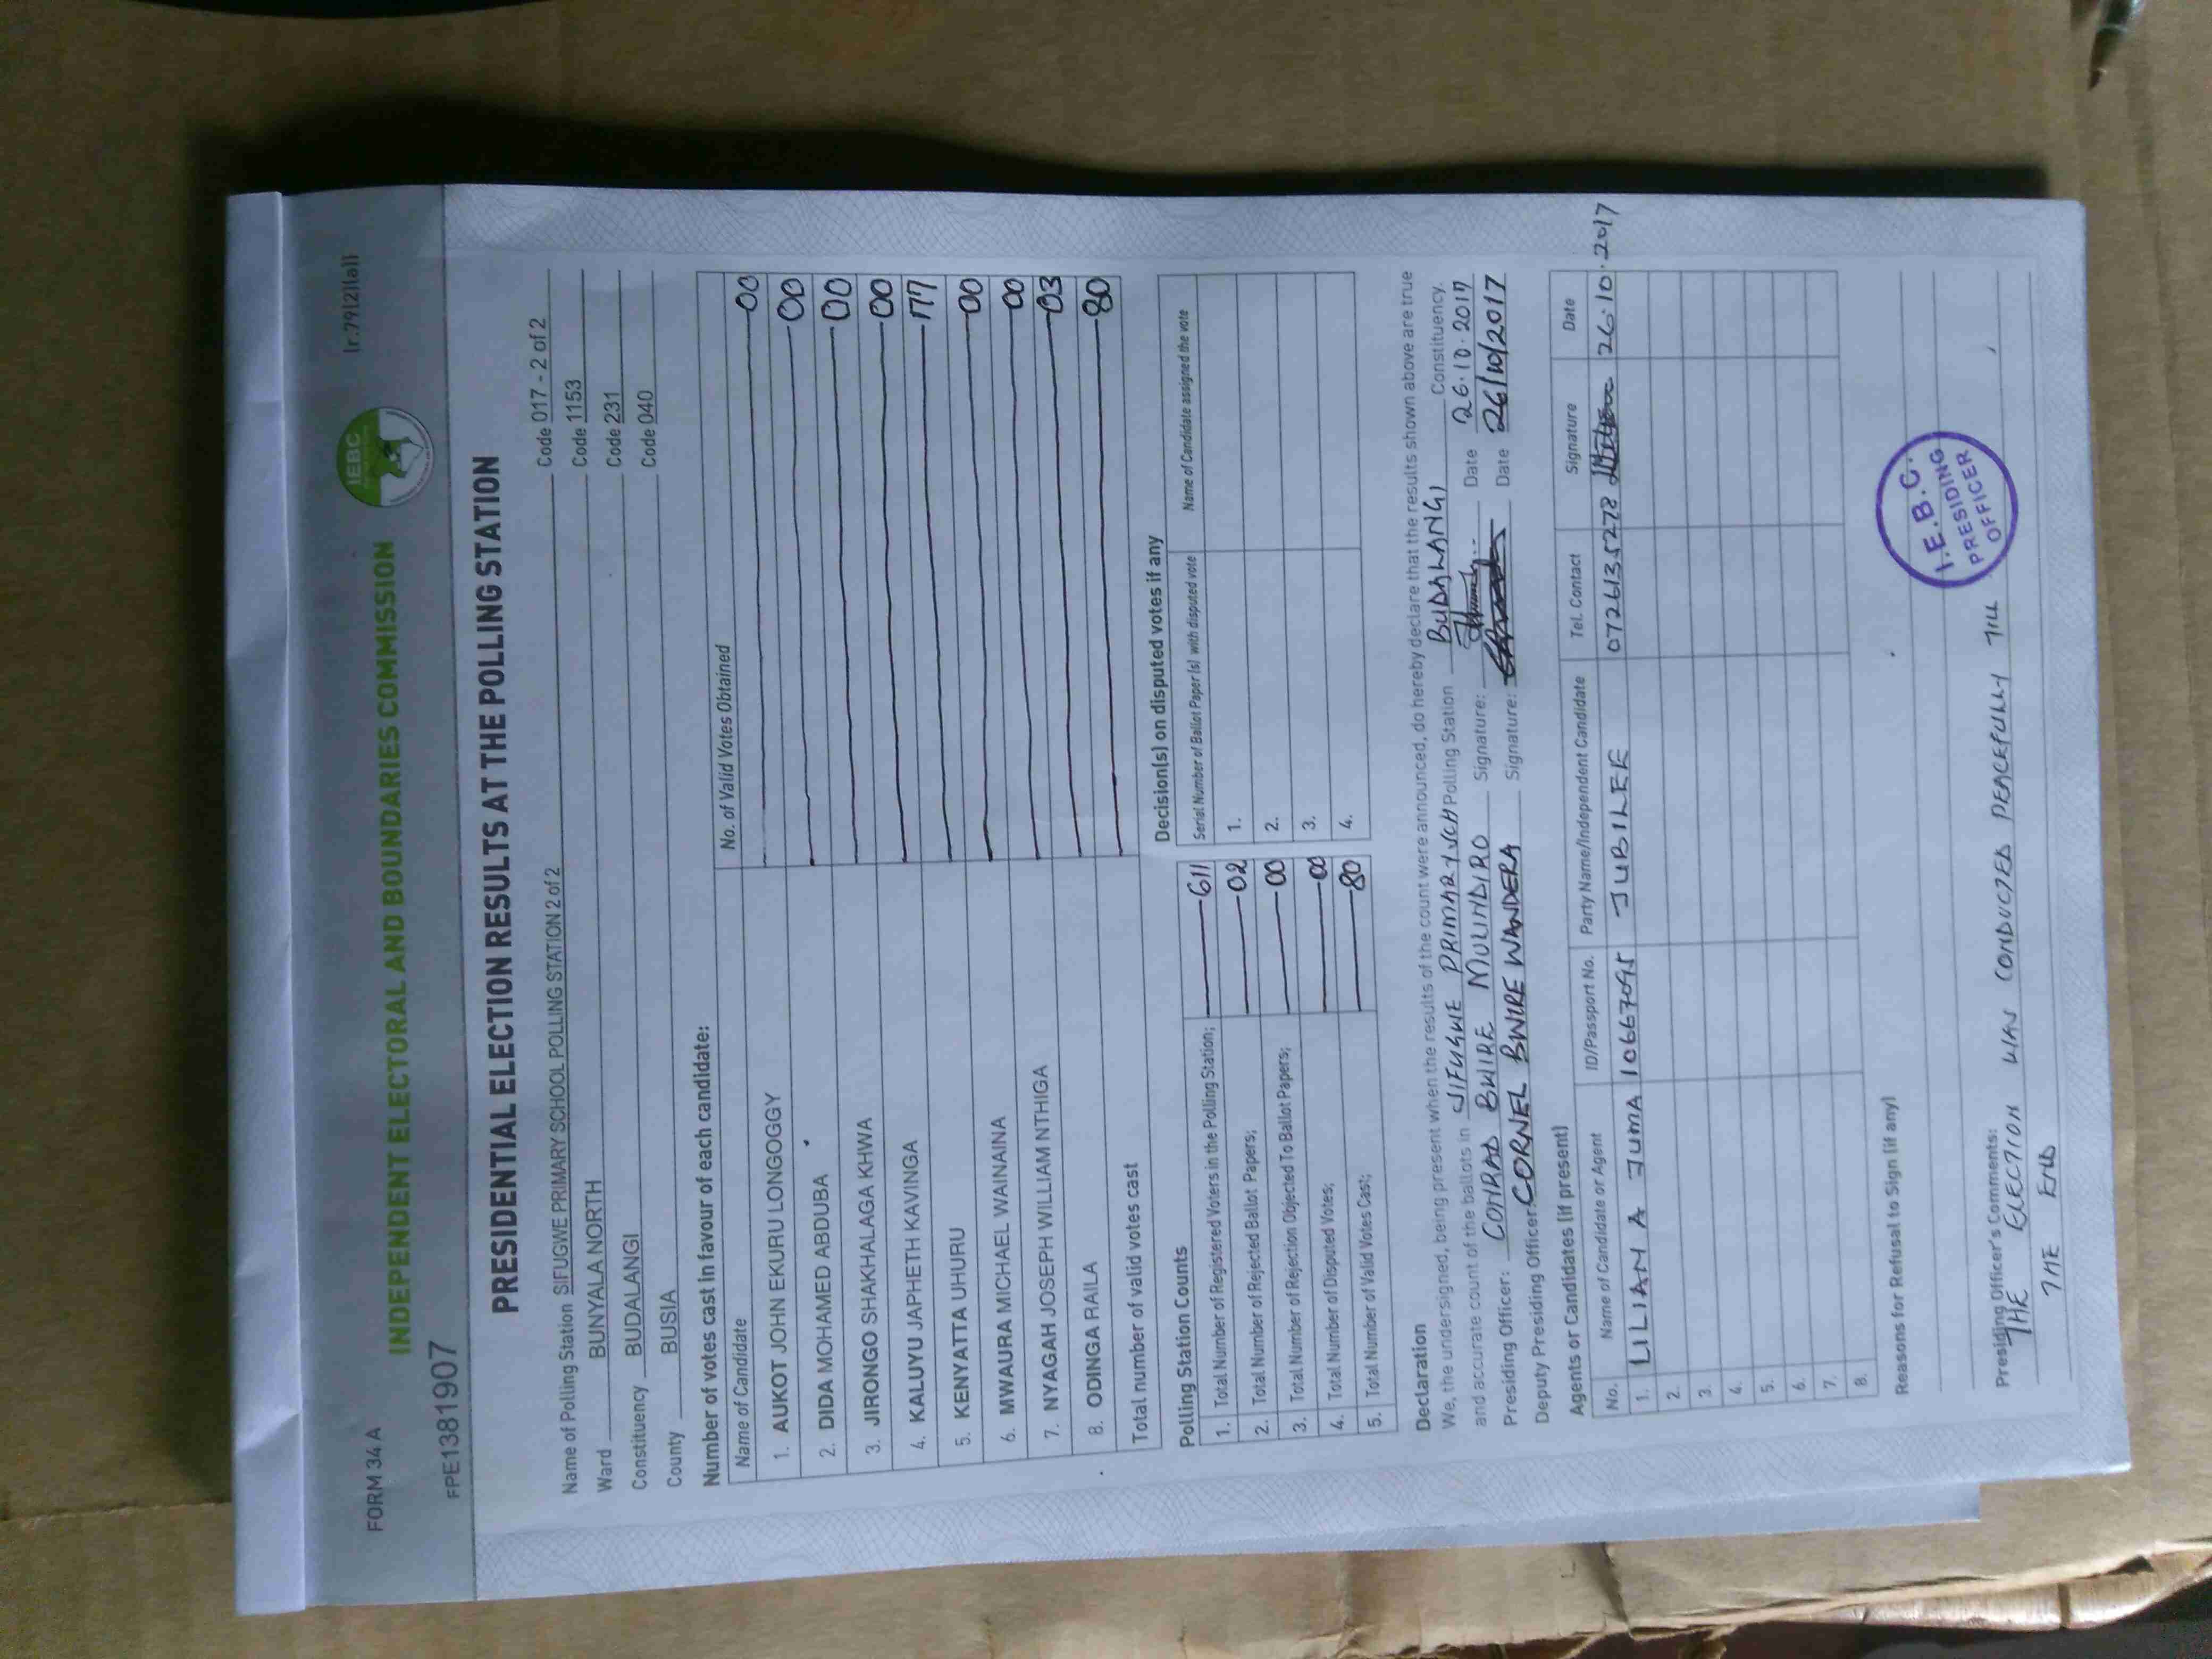 FORM 34A
[r.79(2)(a)]
IEBC
INDEPENDENT ELECTORAL AND BOUNDARIES COMMISSION
FPE1381907
PRESIDENTIAL ELECTION RESULTS AT THE POLLING STATION
Name of Polling Station SIFUGWE PRIMARY SCHOOL POLLING STATION 2 of 2 Code 017 - 2 of 2
Ward BUNYALA NORTH Code 1153
Constituency BUDALANGI Code 231
County BUSIA Code 040
Number of votes cast in favour of each candidate:
Name of Candidate No. of Valid Votes Obtained
1. AUKOT JOHN EKURU LONGOGGY 00
2. DIDA MOHAMED ABDUBA 00
3. JIRONGO SHAKHALAGA KHWA 00
4. KALUYU JAPHETH KAVINGA 00
5. KENYATTA UHURU 77
6. MWAURA MICHAEL WAINAINA 00
7. NYAGAH JOSEPH WILLIAM NTHIGA 00
8. ODINGA RAILA 03
Total number of valid votes cast 80
Polling Station Counts
1. Total Number of Registered Voters in the Polling Station; 611
2. Total Number of Rejected Ballot Papers; 02
3. Total Number of Rejection Objected To Ballot Papers; 00
4. Total Number of Disputed Votes; 00
5. Total Number of Valid Votes Cast; 80
Decision(s) on disputed votes if any
Serial Number of Ballot Paper (s) with disputed vote Name of Candidate assigned the vote
1.
2.
3.
4.
Declaration
We, the undersigned, being present when the results of the count were announced, do hereby declare that the results shown above are true
and accurate count of the ballots in SIFUGWE PRIMARY SCH Polling Station BUDALANGI Constituency.
Presiding Officer: CONRAD BWIRE MULINDIRO Signature: Date 26.10.2017
Deputy Presiding Officer: CORNEL BWIRE WANDERA Signature: Date 26/10/2017
Agents or Candidates (if present)
No. Name of Candidate or Agent ID/Passport No. Party Name/Independent Candidate Tel. Contact Signature Date
1. LILIAN A JUMA 10667095 JUBILEE 0726135278 26.10.2017
2.
3.
4.
5.
6.
7.
8.
Reasons for Refusal to Sign (if any)
Presiding Officer's Comments:
THE ELECTION WAS CONDUCTED PEACEFULLY TILL
THE END
I.E.B.C.
PRESIDING
OFFICER